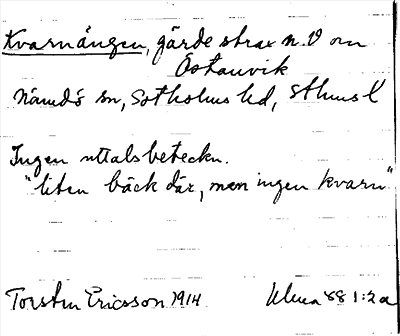 Kvarnängen, gärde strax n. V om
Östanvik
Nämdö sn, Sotholms hd, Sthms l
Ingen uttalsbeteckn.
"liten bäck där, men ingen kvarn"
Torsten Ericsson 1914
1:2a